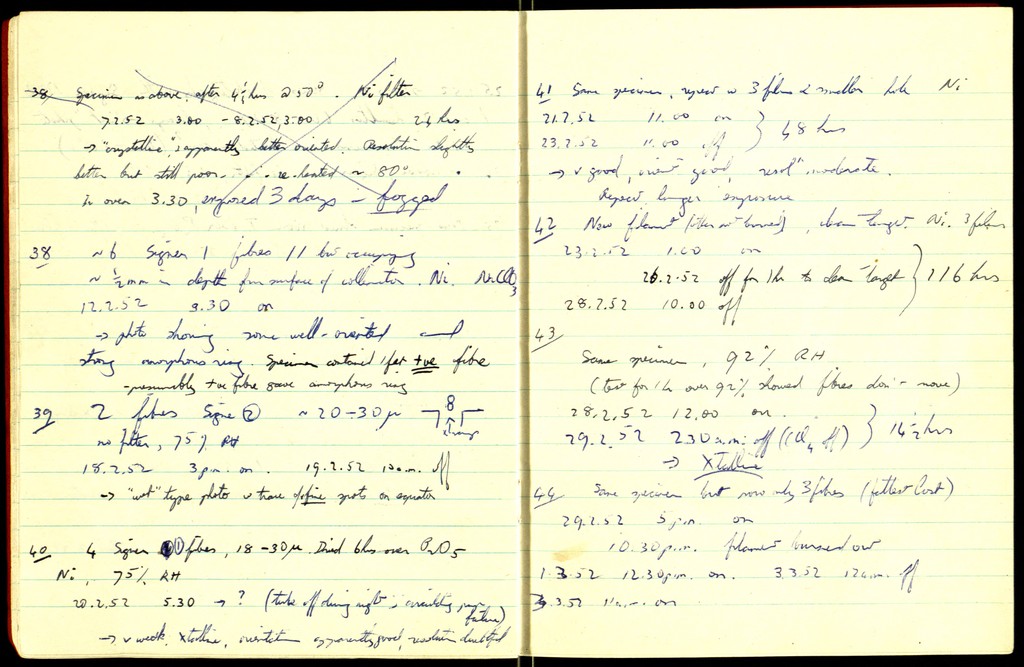 38 Specimen as above, after 4½ hrs @ 50°. Ni filter
7.2.52 3.00 - 8.2.52, 3.00 24 hrs
→ "crystalline", apparently better oriented. Resolution slightly
better but still poor. re-heated ~ 80°
over 3.30, exposed 3 days - fogged
38 ~6 Signer 1 fibres // but occupying
~ ½mm in depth from surface of collimator. Ni.
12.2.52 3.30 on
→ photo showing some well-oriented and
strong amorphous ring. Specimen contained 1 fat +ve fibre
- presumably +ve fibre gave amorphous ring
39 2 fibres Signer 2 ~20-30μ 8
no filter, 75% RH
18.2.52 3 p.m. on. 19.2.52 10 a.m. off
→ "wet" type photo w trace of fine spots on equator
40 4 Signer 1 fibres, 18-30μ. Dried 6hrs over P2O5
Ni, 75% RH
20.2.52 5.30 → ? (tube off during night; circulating pump
failure)
→ v weak, Xtalline, orientation apparently good, resolution doubtful
41 Same specimen, repeat w 3 films & smaller hole Ni
21.2.52 11.00 on
23.2.52 11.00 off } 48 hrs
→ v good, orient good, resol moderate.
Repeat, longer exposure
42 New filament (other not burned), clean target. Ni. 3 films
23.2.52 1.00 on
26.2.52 off for 1hr to clean target } 116 hrs
28.2.52 10.00 off
43
Same specimen, 92% RH
(test for 1hr over 92% showed fibres don't move)
28.2.52 12.00 on.
29.2.52 2.30 a.m. off (CCl4 off) } 14½ hrs
→ Xtalline
44 Same specimen but now only 3 fibres (fattest lost)
29.2.52 5 p.m. on
10.30 p.m. filament burned out
1.3.52 12.30 p.m. on. 3.3.52 12 a.m. off
3.3.52 11 a.m. on